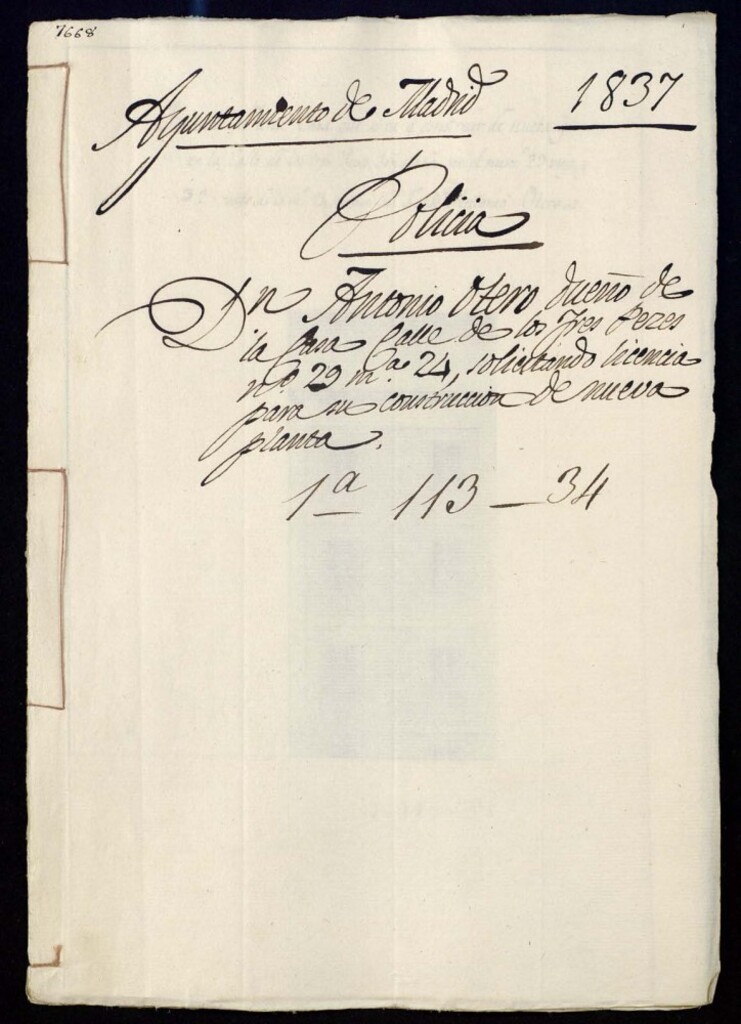 7668
Ayuntamiento de Madrid 1837
Policia
Dn Antonio Otero dueño de
la Casa Calle de los Tres Pezes
n.o 29 m.a 24, solicitando licencia
para su construccion de nueva
planta.
1a 113 - 34